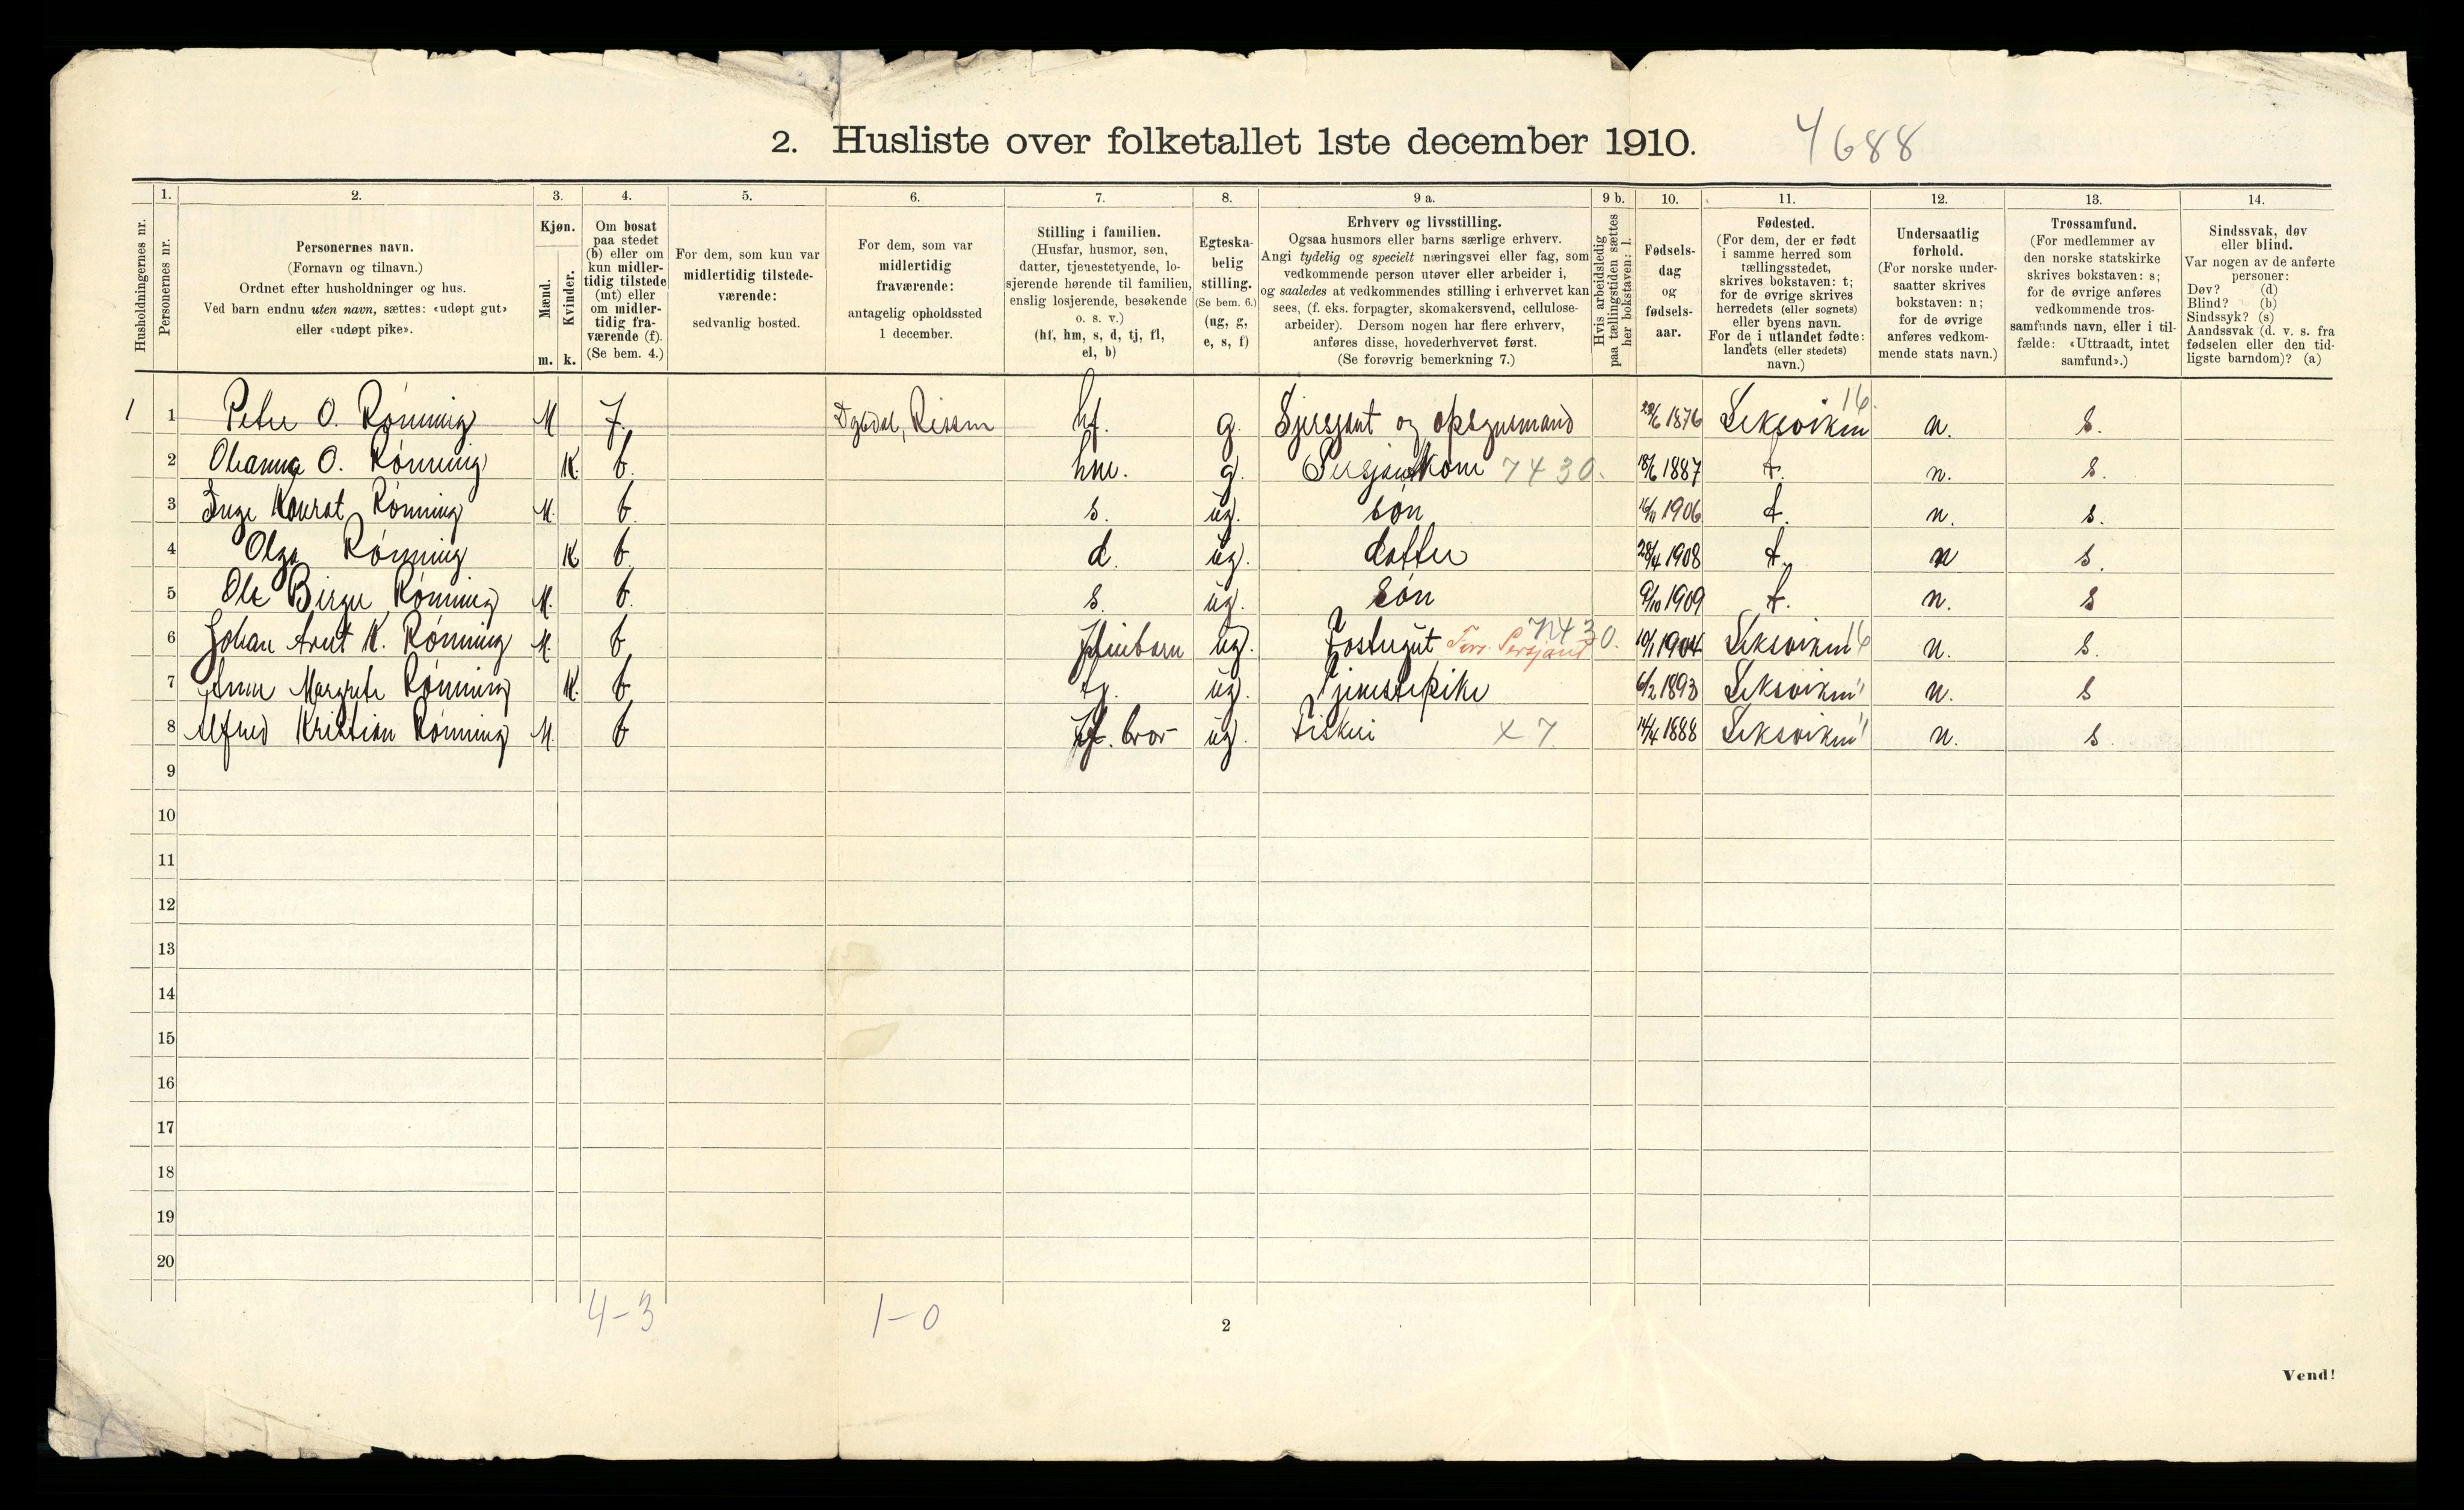 2. Husliste over folketallet 1ste december 1910.
4688
Husholdningernes nr.
1.
Personernes nr.
2.
Personernes navn.
(Fornavn og tilnavn.)
Ordnet efter husholdninger og hus.
Ved barn endnu uten navn, sættes: «udøpt gut»
eller «udøpt pike».
3.
Kjøn.
Mænd.
Kvinder.
m. k.
4.
Om bosat
paa stedet
(b) eller om
kun midler-
tidig tilstede
(mt) eller
om midler-
tidig fra-
værende (f).
(Se bem. 4.)
5.
For dem, som kun var
midlertidig tilstede-
værende:
sedvanlig bosted.
6.
For dem, som var
midlertidig
fraværende:
antagelig opholdssted
1 december.
7.
Stilling i familien.
(Husfar, husmor, søn,
datter, tjenestetyende, lo-
sjerende hørende til familien,
enslig losjerende, besøkende
o. s. v.)
(hf, hm, s, d, tj, fl,
el, b)
8.
Egteska-
belig
stilling.
(Se bem. 6.)
(ug, g,
e, s, f)
9 a.
Erhverv og livsstilling.
Ogsaa husmors eller barns særlige erhverv.
Angi tydelig og specielt næringsvei eller fag, som
vedkommende person utøver eller arbeider i,
og saaledes at vedkommendes stilling i erhvervet kan
sees, (f. eks. forpagter, skomakersvend, cellulose-
arbeider). Dersom nogen har flere erhverv,
anføres disse, hovederhvervet først.
(Se forøvrig bemerkning 7.)
9 b.
Hvis arbeidsledig
paa tællingstiden sættes
her bokstaven: l.
10.
Fødsels-
dag
og
fødsels-
aar.
11.
Fødested.
(For dem, der er født
i samme herred som
tællingsstedet,
skrives bokstaven: t;
for de øvrige skrives
herredets (eller sognets)
eller byens navn.
For de i utlandet fødte:
landets (eller stedets)
navn.)
12.
Undersaatlig
forhold.
(For norske under-
saatter skrives
bokstaven: n;
for de øvrige
anføres vedkom-
mende stats navn.)
13.
Trossamfund.
(For medlemmer av
den norske statskirke
skrives bokstaven: s;
for de øvrige anføres
vedkommende tros-
samfunds navn, eller i til-
fælde: «Uttraadt, intet
samfund».)
14.
Sindssvak, døv
eller blind.
Var nogen av de anførte
personer:
Døv? (d)
Blind? (b)
Sindssyk? (s)
Aandssvak (d. v. s. fra
fødselen eller den tid-
ligste barndom)? (a)
1 1 Peter O. Rønning M f. Rissen hf. g. Sjersjant og opsynsmand 1876 Leksviken 16. n. s.
2 Ohanna O. Rønning K. b. hm. g. Sersjantkone 7430. 18/6 1887 t. n. s.
3 Inge Konrat Rønning M. b. s. ug. søn 16/11 1906 t. n. s.
4 Olga Rønning K b. d. ug. datter 28/4 1908 t. n s.
5 Ole Birger Rønning M. b. s. ug. søn 9/10 1909 t. n. s
6 Johan Arnt K. Rønning M. b. ug. Fostergut Fors. Sersjant 7430. 10/1 1904 Leksviken 16 n. s.
7 Anna Margrete Rønning K. b. tj. ug. Tjenestepike 6/2 1893 Leksviken " n. s
8 Alfred Kristian Rønning M. b hf. bror ug. Fiskeri x 7 14/4 1888 Leksviken " n. s.
9
10
11
12
13
14
15
16
17
18
19
20
4-3 1-0
2
Vend!